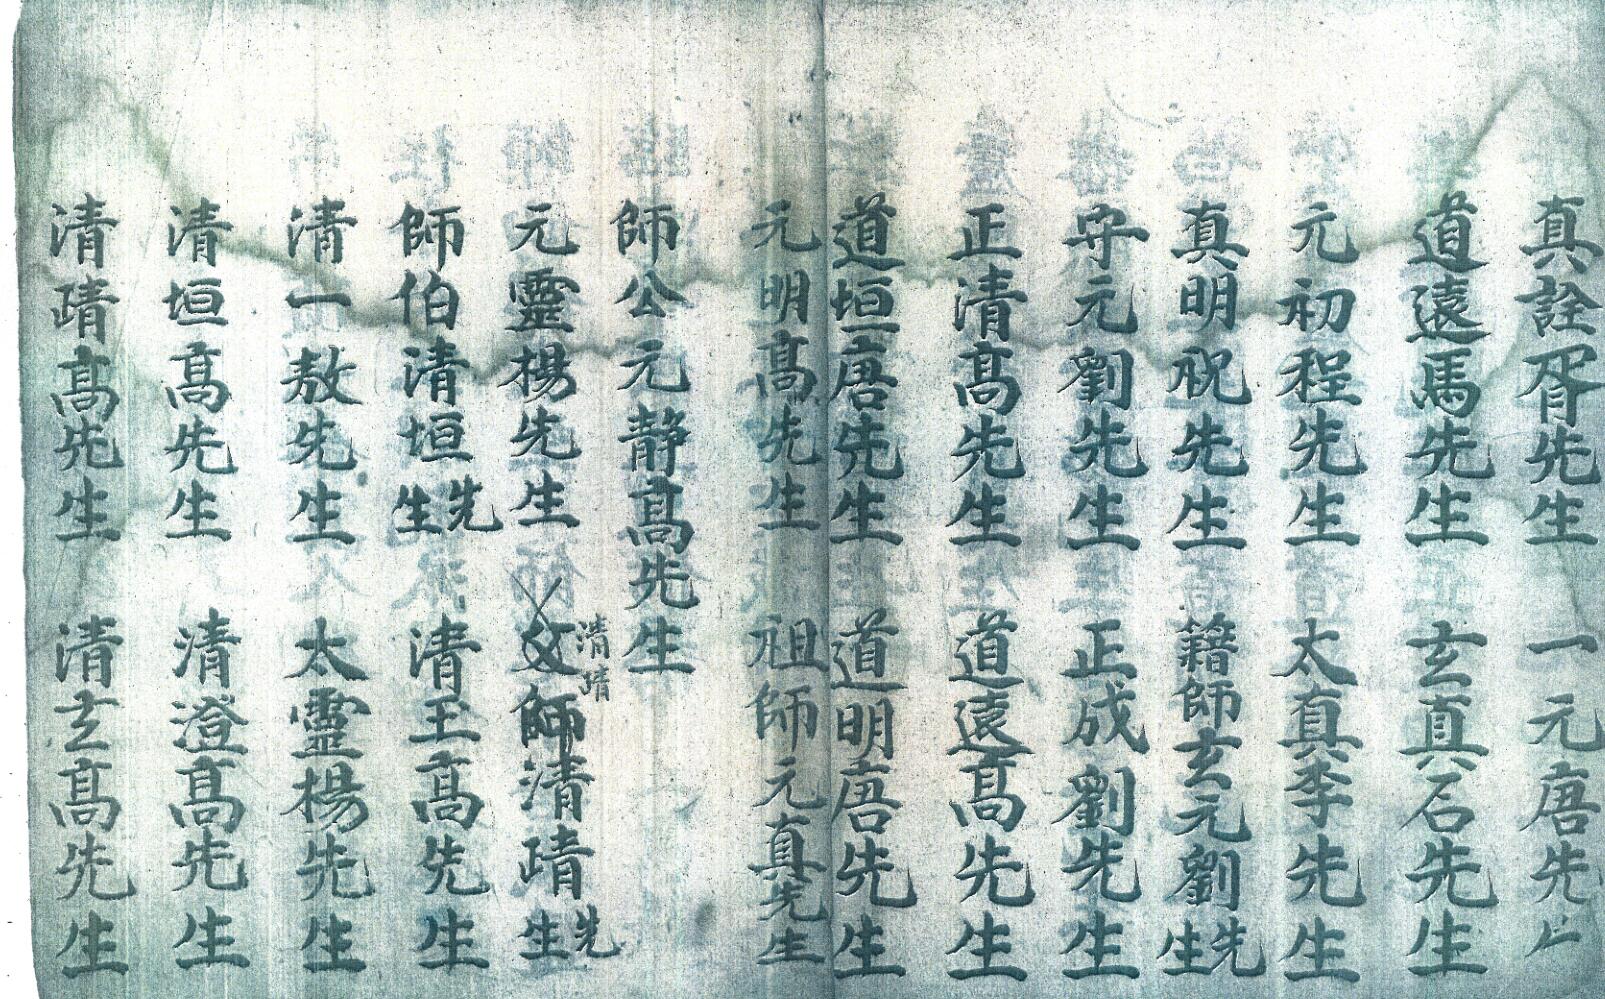 真詮胥先生　一元唐先生
道遠馬先生　玄真石先生
元初程先生　太真李先生
真明祝先生　籍師玄元劉先生
守元劉先生　正成劉先生
正清髙先生　道遠髙先生
道垣唐先生　道明唐先生
元明髙先生　祖師元真先生
師公元静髙先生
清靖
元靈楊先生　父師清靖先生
師伯清垣先生　清玉髙先生
清一敖先生　太靈楊先生
清垣髙先生　清澄髙先生
清靖髙先生　清玄髙先生